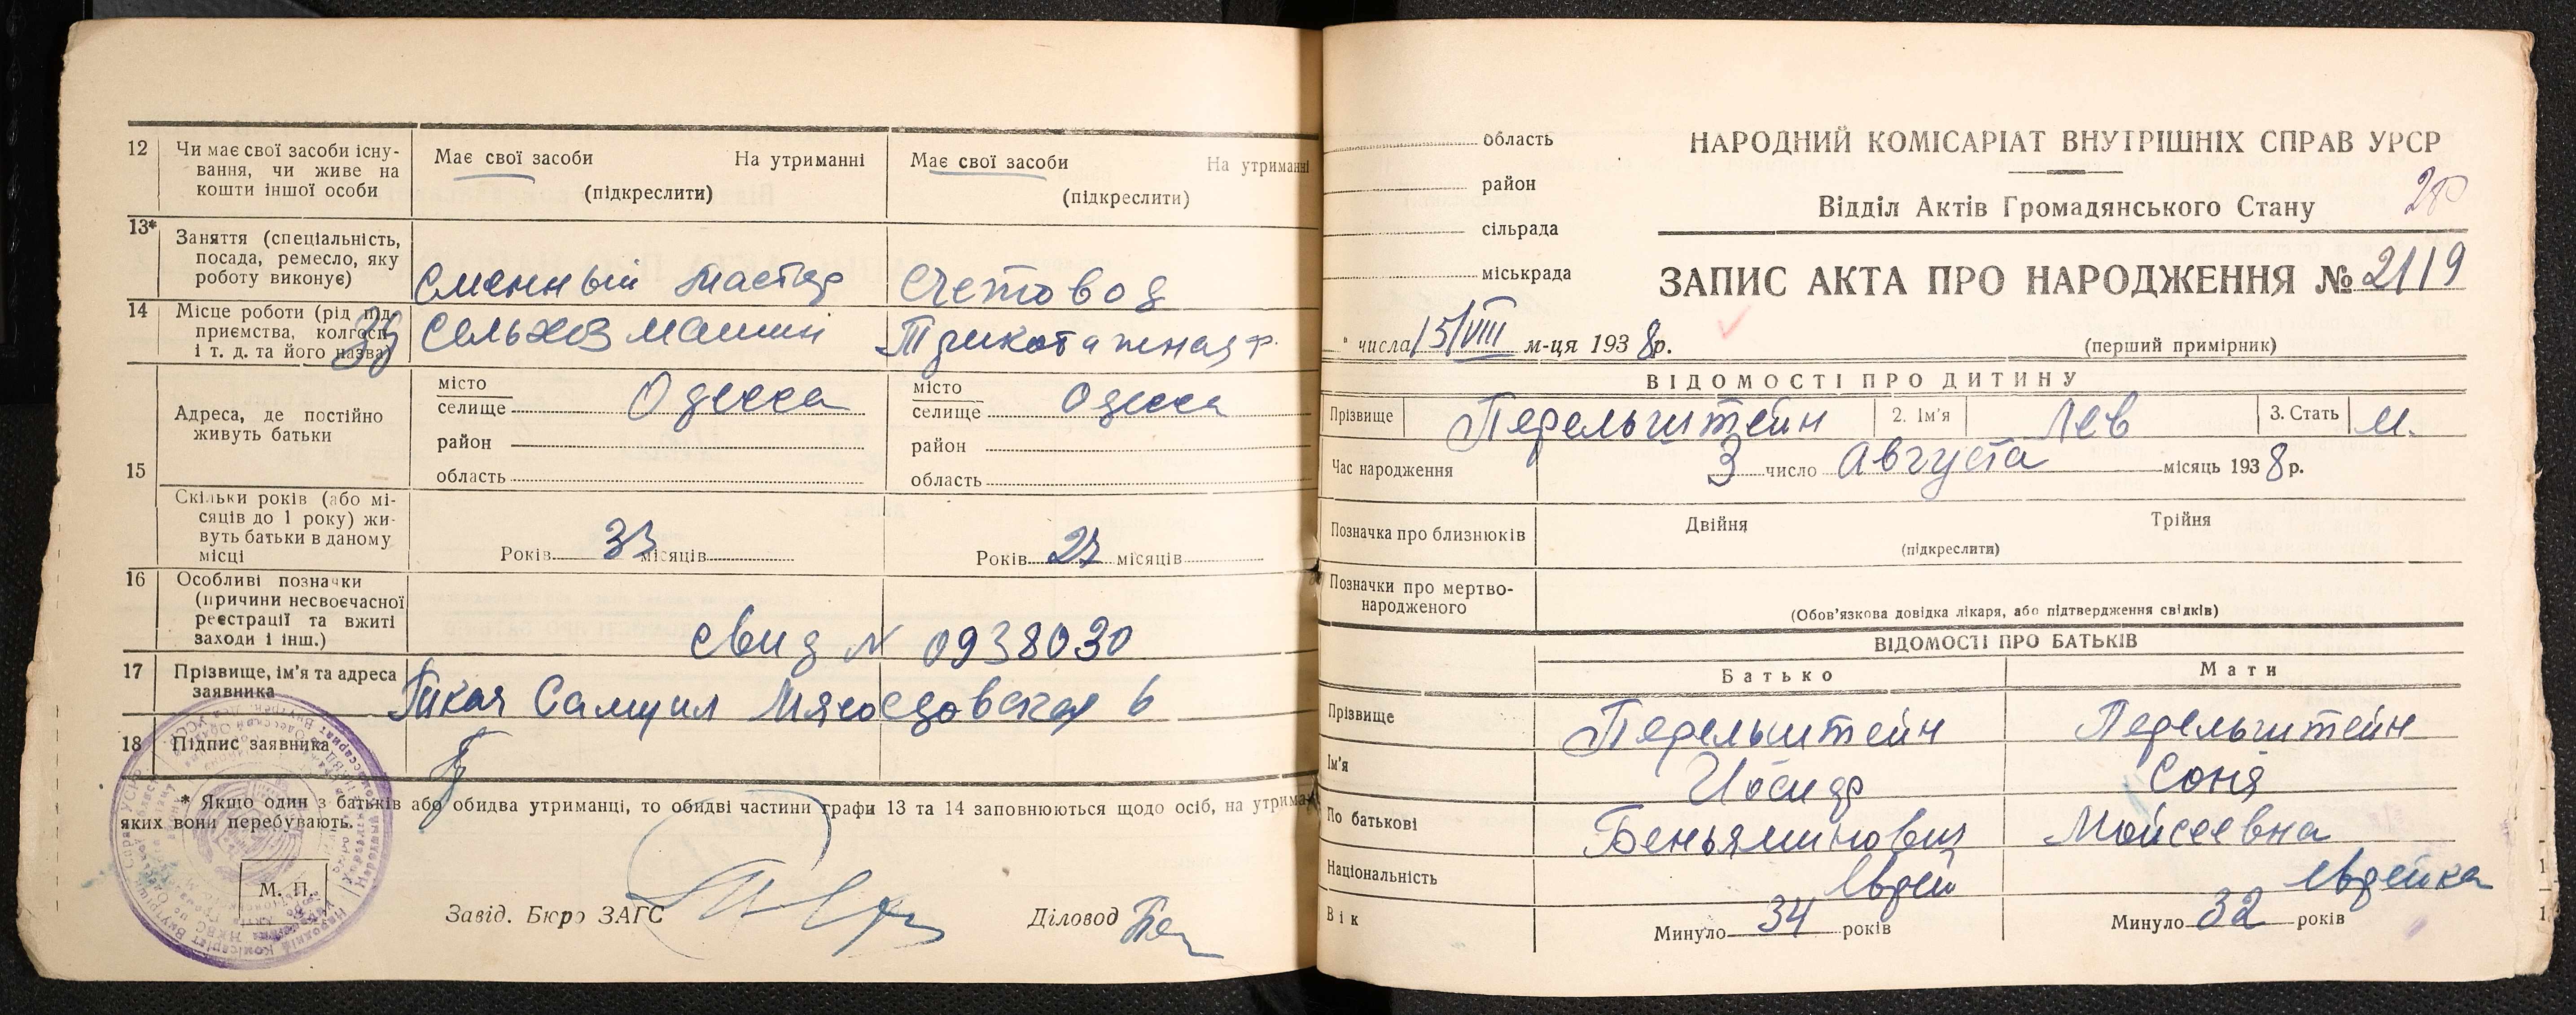 12 Чи має свої засоби існу-
вання, чи живе на
кошти іншої особи
Має свої засоби На утриманні
(підкреслити)
Має свої засоби На утриманні
(підкреслити)
13* Заняття (спеціальність,
посада, ремесло, яку
роботу виконує)
Сменный мастер
Счетовод
14 Місце роботи (рід під-
приємства, колгосп
і т. д. та його назва)
39
Сельхозмашин
Трикотажная ф.
15 Адреса, де постійно
живуть батьки
місто
селище Одесса
район
область
місто
селище Одесса
район
область
Скільки років (або мі-
сяців до 1 року) жи-
вуть батьки в даному
місці
Років 33 місяців
Років 27 місяців
16 Особливі позначки
(причини несвоєчасної
реєстрації та вжиті
заходи і інш.)
свид N 0938030
17 Прізвище, ім'я та адреса
заявника
Самуил Мясоедовская 6
18 Підпис заявника
* Якщо один з батьків або обидва утриманці, то обидві частини графи 13 та 14 заповнюються щодо осіб, на утриман
яких вони перебувають.
М. П.
Завід. Бюро ЗАГС
Діловод
область
район
сільрада
міськрада
" числа 15/VIII м-ця 1938р.
НАРОДНИЙ КОМІСАРІАТ ВНУТРІШНІХ СПРАВ УРСР
Відділ Актів Громадянського Стану
ЗАПИС АКТА ПРО НАРОДЖЕННЯ № 2119
(перший примірник)
ВІДОМОСТІ ПРО ДИТИНУ
Прізвище Перельштейн 2. Ім'я Лев 3. Стать м.
Час народження 3 число Августа місяць 1938 р.
Позначка про близнюків Двійня Трійня
(підкреслити)
Позначки про мертво-
народженого
(Обов'язкова довідка лікаря, або підтвердження свідків)
ВІДОМОСТІ ПРО БАТЬКІВ
Батько Мати
Прізвище Перельштейн Перельштейн
Ім'я Иосиф Соня
По батькові Беньяминович Мойсеевна
Національність Еврей Еврейка
Вік Минуло 34 років Минуло 32 років